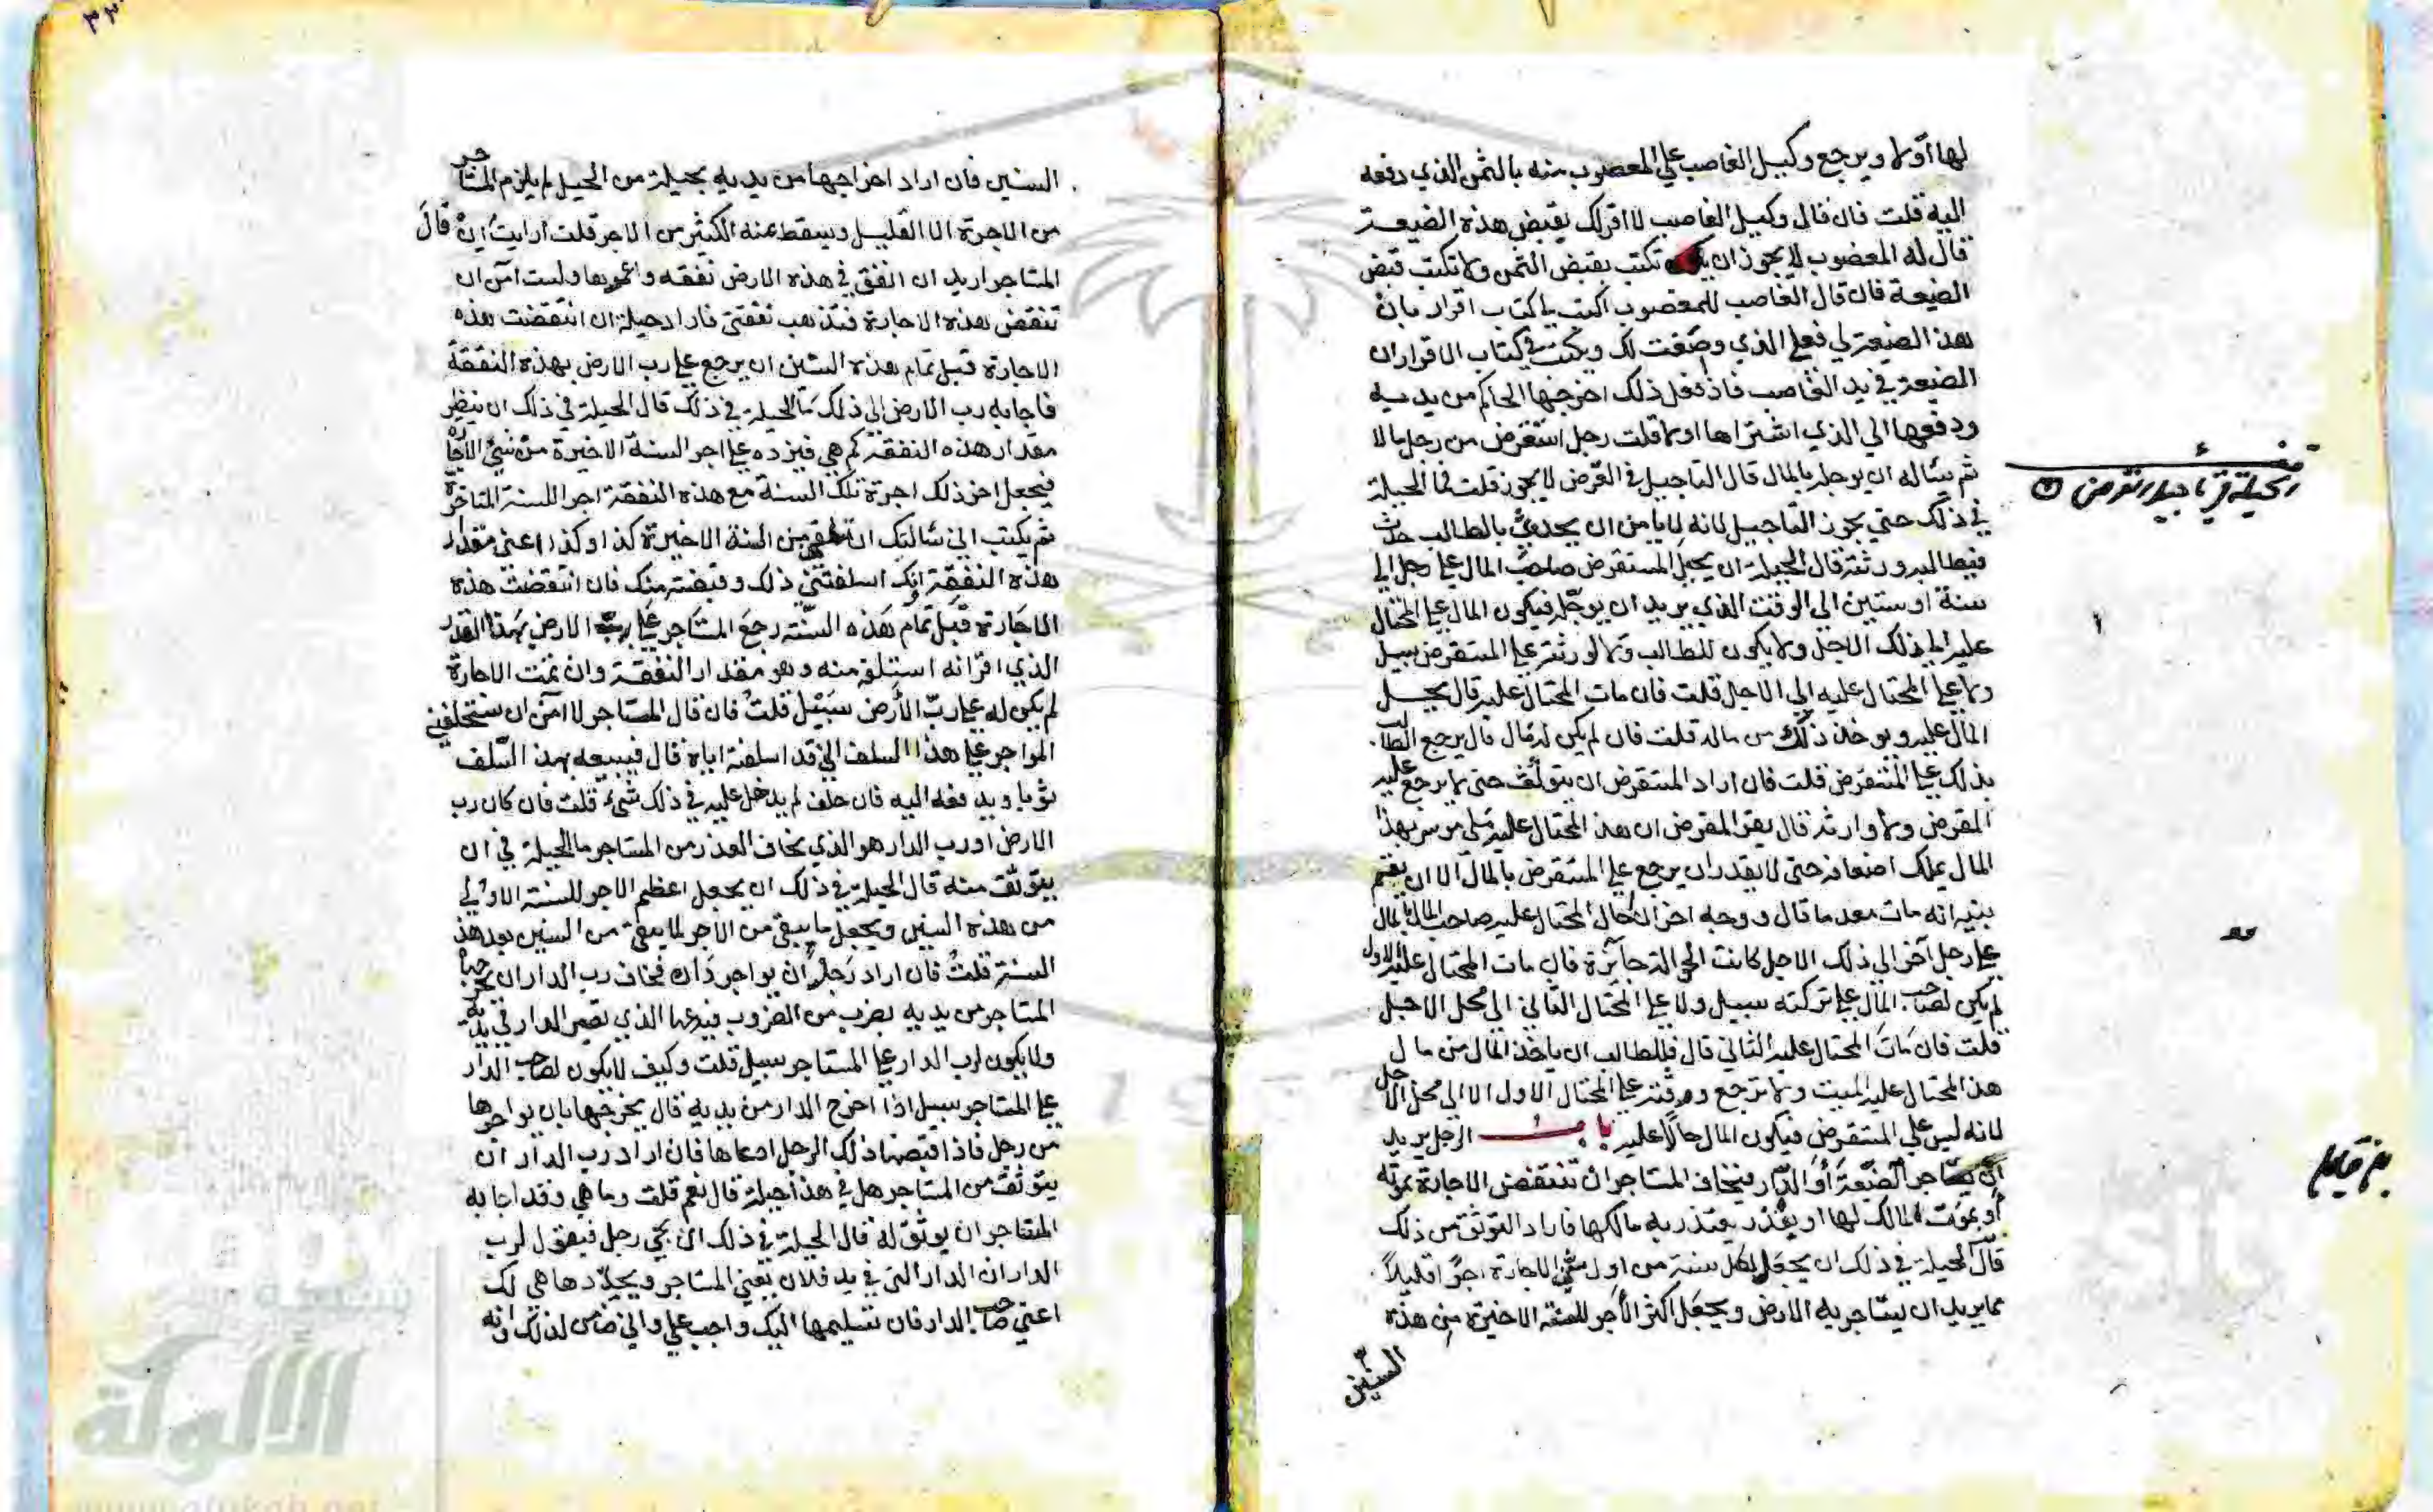 لها اولا ويرجع وكيل الغاصب علي المعصوب منه بالثمن الذي دفعه
اليه قلت فان قال وكيل الغاصب لا اقر لك بقبض هذه الضيعة
قال له المغضوب لا يجوز ان تكتب بقبض الثمن ولا تكتب قبض
الضيعة فان قال الغاصب للمغصوب اكتب لي كتاب اقرار بان
هذه الضيعة لي فعلي الذي وصفت لك ويكتب في كتاب الاقرار ان
الضيعة في يد الغاصب فاذا فعل ذلك اخرجها الحاكم من يديه
ودفعها الي الذي اشتراها اولا قلت رجل استقرض من رجل مالا
ثم ساله ان يوجله بالمال قال التاجيل في القرض لا يجوز قلت فما الحيلة
في ذلك حتي يجوز التاجيل لانه لا يامن ان يحدث بالطالب حدث
فيطالبه ورثته قال الحيلة ان يحيل المستقرض صاحب المال علي رجل الي
سنة او سنتين الي الوقت الذي يريد ان يوجله فيكون المال علي المحتال
عليه الي ذلك الاجل ولا يكون للطالب ولا لورثته علي المستقرض سبيل
ولا علي المحتال عليه الي الاجل قلت فان مات المحتال عليه قال يحل
المال عليه ويوخذ ذلك من ماله قلت فان لم يكن له مال قال يرجع الطالب
بذلك علي المستقرض قلت فان اراد المستقرض ان يتوثق حتى لا يرجع عليه
المقرض ولا وارثه قال يقر المقرض ان هذا المحتال عليه ملي موسر بهذا
المال يملك اضعافه حتى لا يقدر ان يرجع علي المستقرض بالمال الا ان يقيم
بينة انه مات معدما قال ووجه اخر ان احال المحتال عليه صاحب المال بالمال
علي رجل آخر الي ذلك الاجل كانت الحوالة جائزة فان مات المحتال عليه الاول
لم يكن لصاحب المال علي تركته سبيل ولا علي المحتال الثاني الي محل الاجل
قلت فان مات المحتال عليه الثاني قال فللطالب ان ياخذ المال من مال
هذا المحتال عليه الميت ولا ترجع ورثته علي المحتال الاول الا الي محل الاجل
لانه ليس علي المستقرض فيكون المال حالا عليه باب الرجل يريد
ان يستاجر الضيعة أو الدار فيخاف المستاجر ان تنتقض الاجارة بموته
أو بموت المالك لها او بعذر يعتذر به مالكها فاراد التوثق من ذلك
قال الحيلة في ذلك ان يجعل لكل سنة من اول سني الاجارة اجرا قليلاً
مما يريد ان يستاجر به الارض ويجعل اكثر الأجر للسنة الاخيرة من هذه
السنين
الحيلة في تاجيل القرض
السنين فان اراد اخراجها من يديه بحيلة من الحيل لم يلزم المستاجر
من الاجرة الا القليل وسقط عنه الكثير من الاجر قلت ارايت إن قال
المستاجر اريد ان انفق في هذه الارض نفقة واعمرها ولست آمن ان
تنتقض هذه الاجارة فتذهب نفقتي فاراد حيلة ان انتقضت هذه
الاجارة قبل تمام هذه السنين ان يرجع علي رب الارض بهذه النفقة
فاجابه رب الارض الي ذلك ما الحيلة في ذلك قال الحيلة في ذلك ان ينظر
مقدار هذه النفقة كم هي فيزده علي اجر السنة الاخيرة من سني الاجارة
فيجعل اخر ذلك اجرة تلك السنة مع هذه النفقة اجرا للسنة المتاخرة
ثم يكتب اني سالتك ان من السنة الاخيرة كذا وكذا اعني مقدار
هذه النفقة انك اسلفتني ذلك وقبضته منك فان انتقضت هذه
الاجارة قبل تمام هذه السنة رجع المستاجر علي رب الارض بهذا القدر
الذي اقر انه استلفه منه وهو مقدار النفقة وان تمت الاجارة
لم يكن له علي رب الأرض سبيل قلت فان قال المستاجر لا امن ان يستحلفني
المواجر علي هذا السلف اني قد اسلفته اياه قال فيبيعه بهذا السلف
ثوبا ويدفعه اليه فان حلف لم يدخل عليه في ذلك شيء قلت فان كان رب
الارض او رب الدار هو الذي يخاف العذر من المستاجر ما الحيلة في ان
يتوثق منه قال الحيلة في ذلك ان يجعل اعظم الاجر للسنة الاولي
من هذه السنين ويجعل ما يبقى من الأجر لما يبقى من السنين بعد هذه
السنة قلت فان اراد رجل أن يواجر داره فخاف رب الدار ان يخرجها
المستاجر من يديه بضرب من الضروب فيدعيها الذي تصير الدار في يديه
ولا يكون لرب الدار علي المستاجر سبيل قلت وكيف لا يكون لصاحب الدار
علي المستاجر سبيل اذا اخرج الدار من يديه قال يخرجها بان يواجرها
من رجل فاذا قبضها ذلك الرجل ادعاها فان اراد رب الدار ان
يتوثق من المستاجر هل في هذا حيلة قال نعم قلت وما هي وقد اجابه
المستاجر ان يوثق له قال الحيلة في ذلك ان يجي رجل فيقول لرب
الدار ان الدار التي في يد فلان يعني المستاجر ويحددها هي لك
اعني صاحب الدار فان تسليمها اليك واجب علي واني ضامن لذلك وانه
الألوكة
www.alukah.net